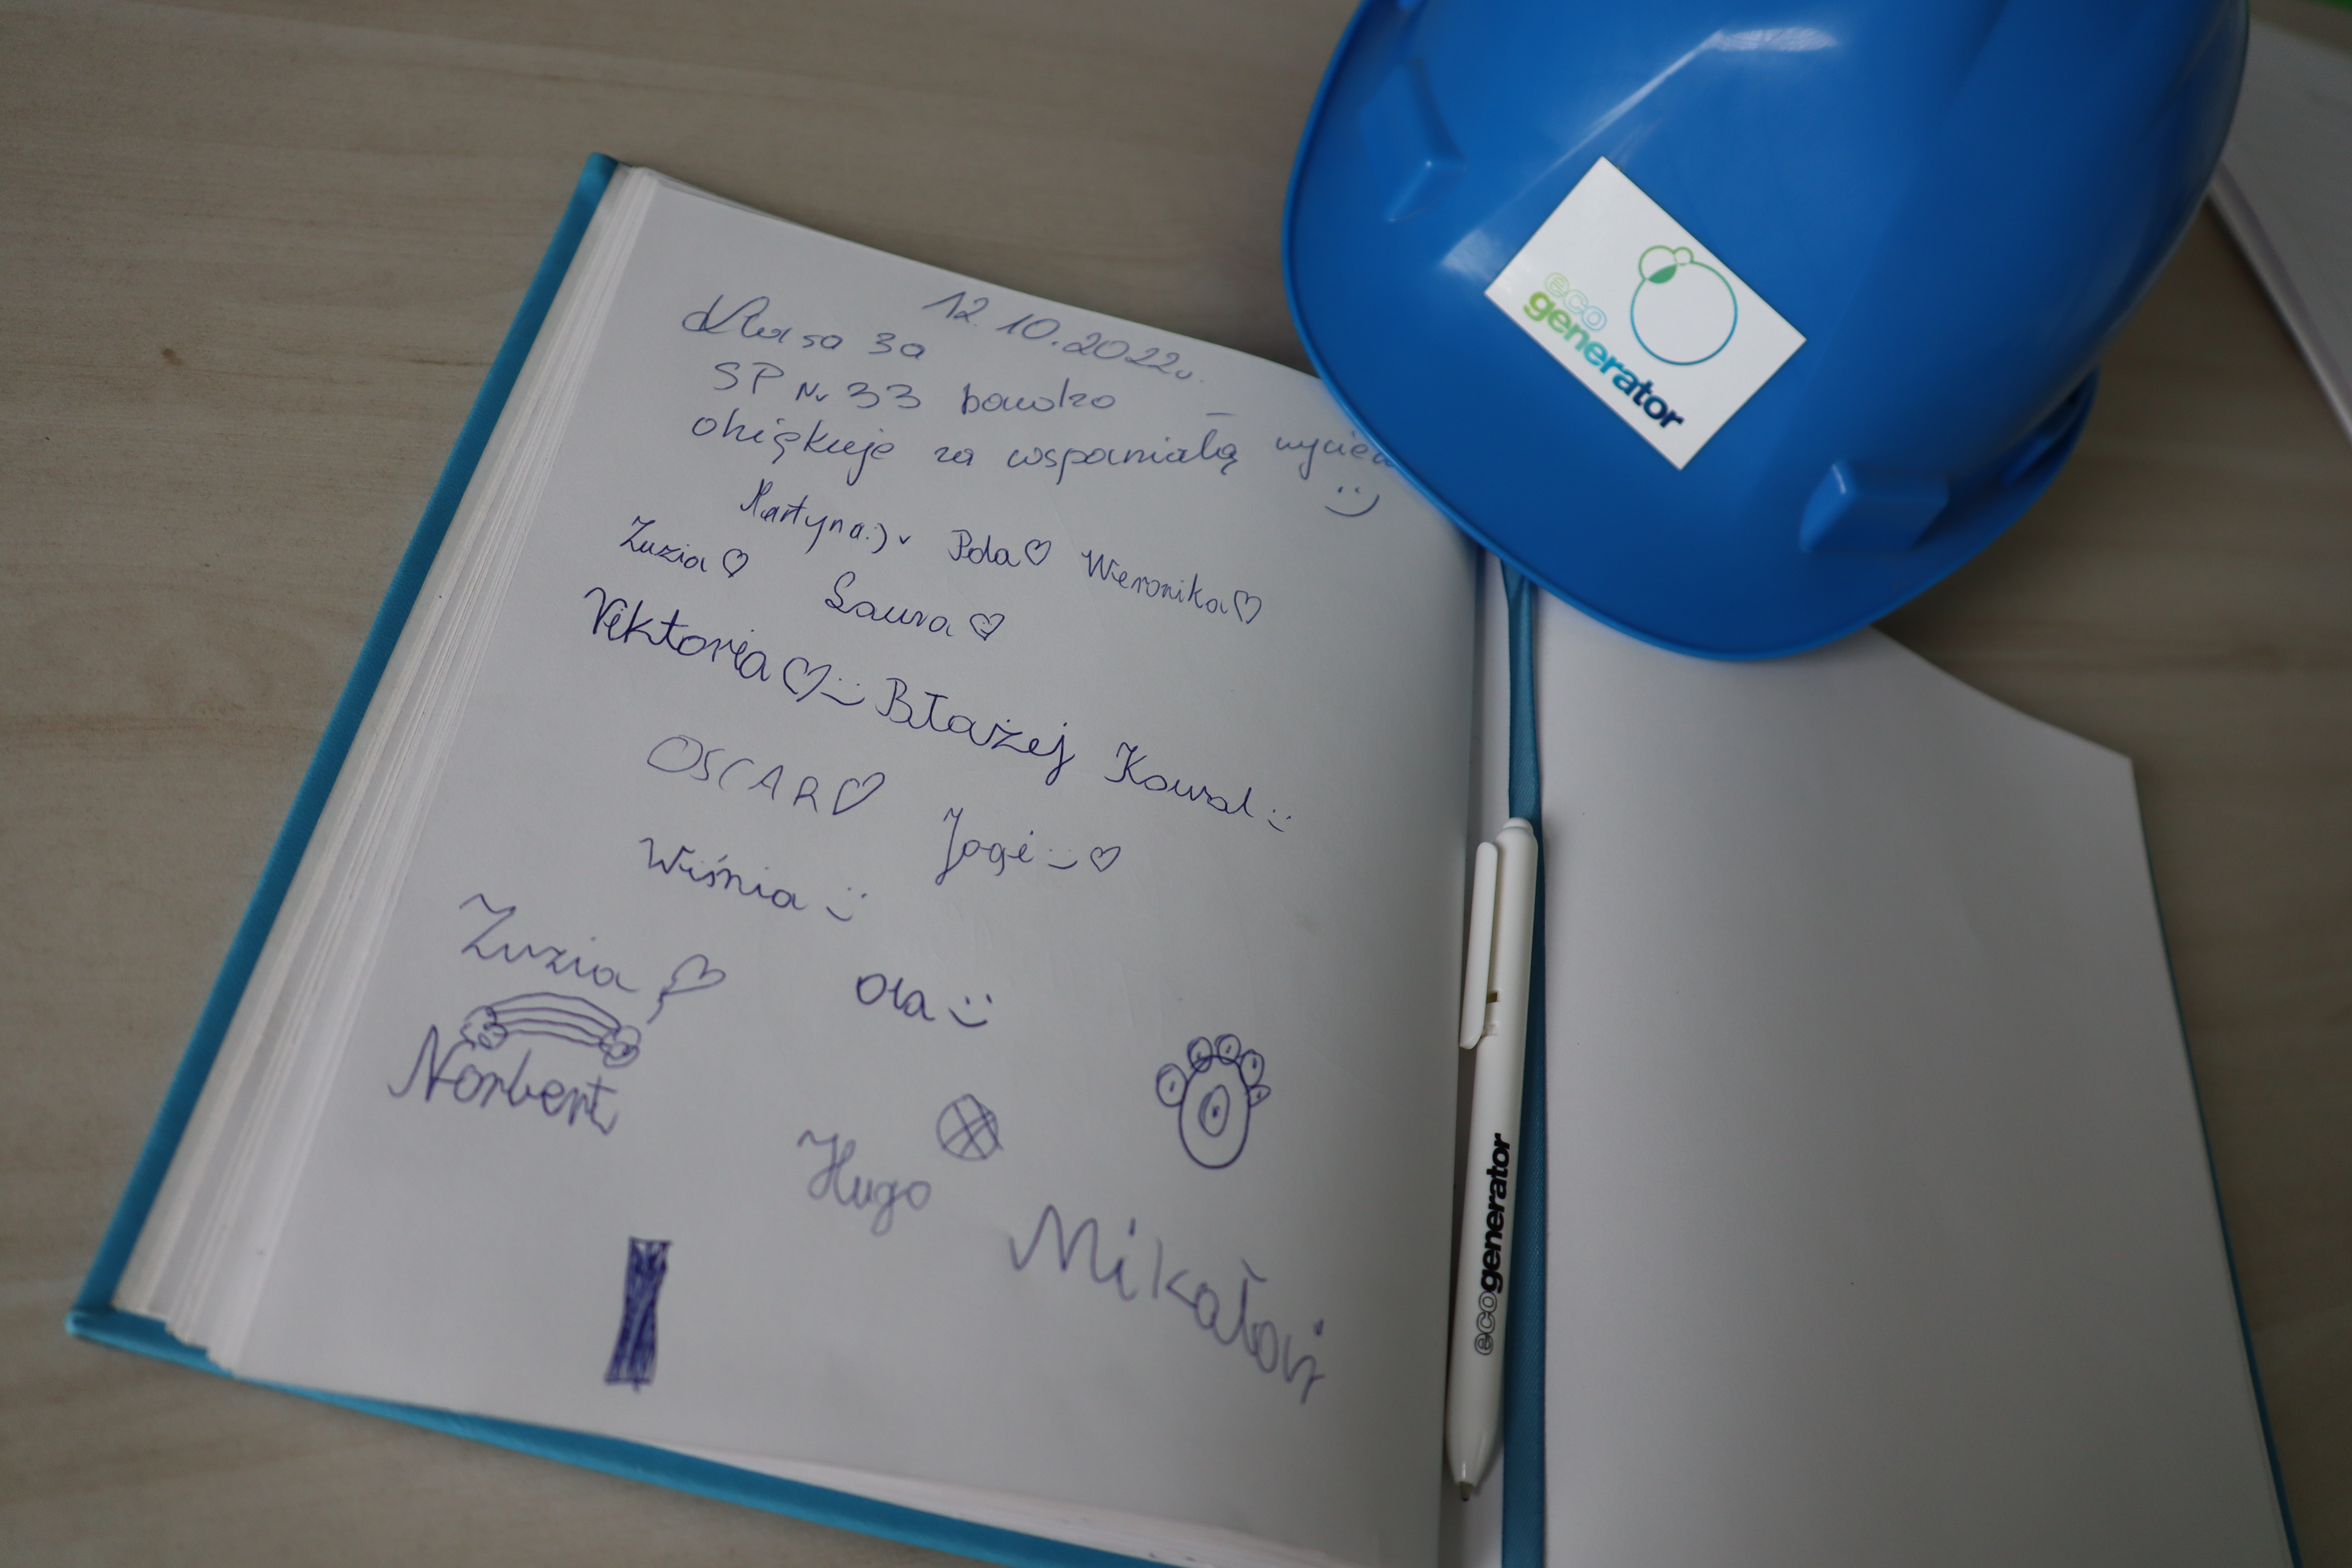 12.10.2022r.
Klasa 3a
SP Nr 33 bardzo
dziękuje za wspaniałą wyciecz
:)
Martyna:) Pola♡ Weronika♡
Zuzia♡ Laura♡
Wiktoria♡:) Błażej Kowal :)
OSCAR♡ Jogi :)♡
Wiśnia :)
Zuzia♡ Ola :)
Norbert
Hugo
Mikołaj
eco
generator
ecogenerator